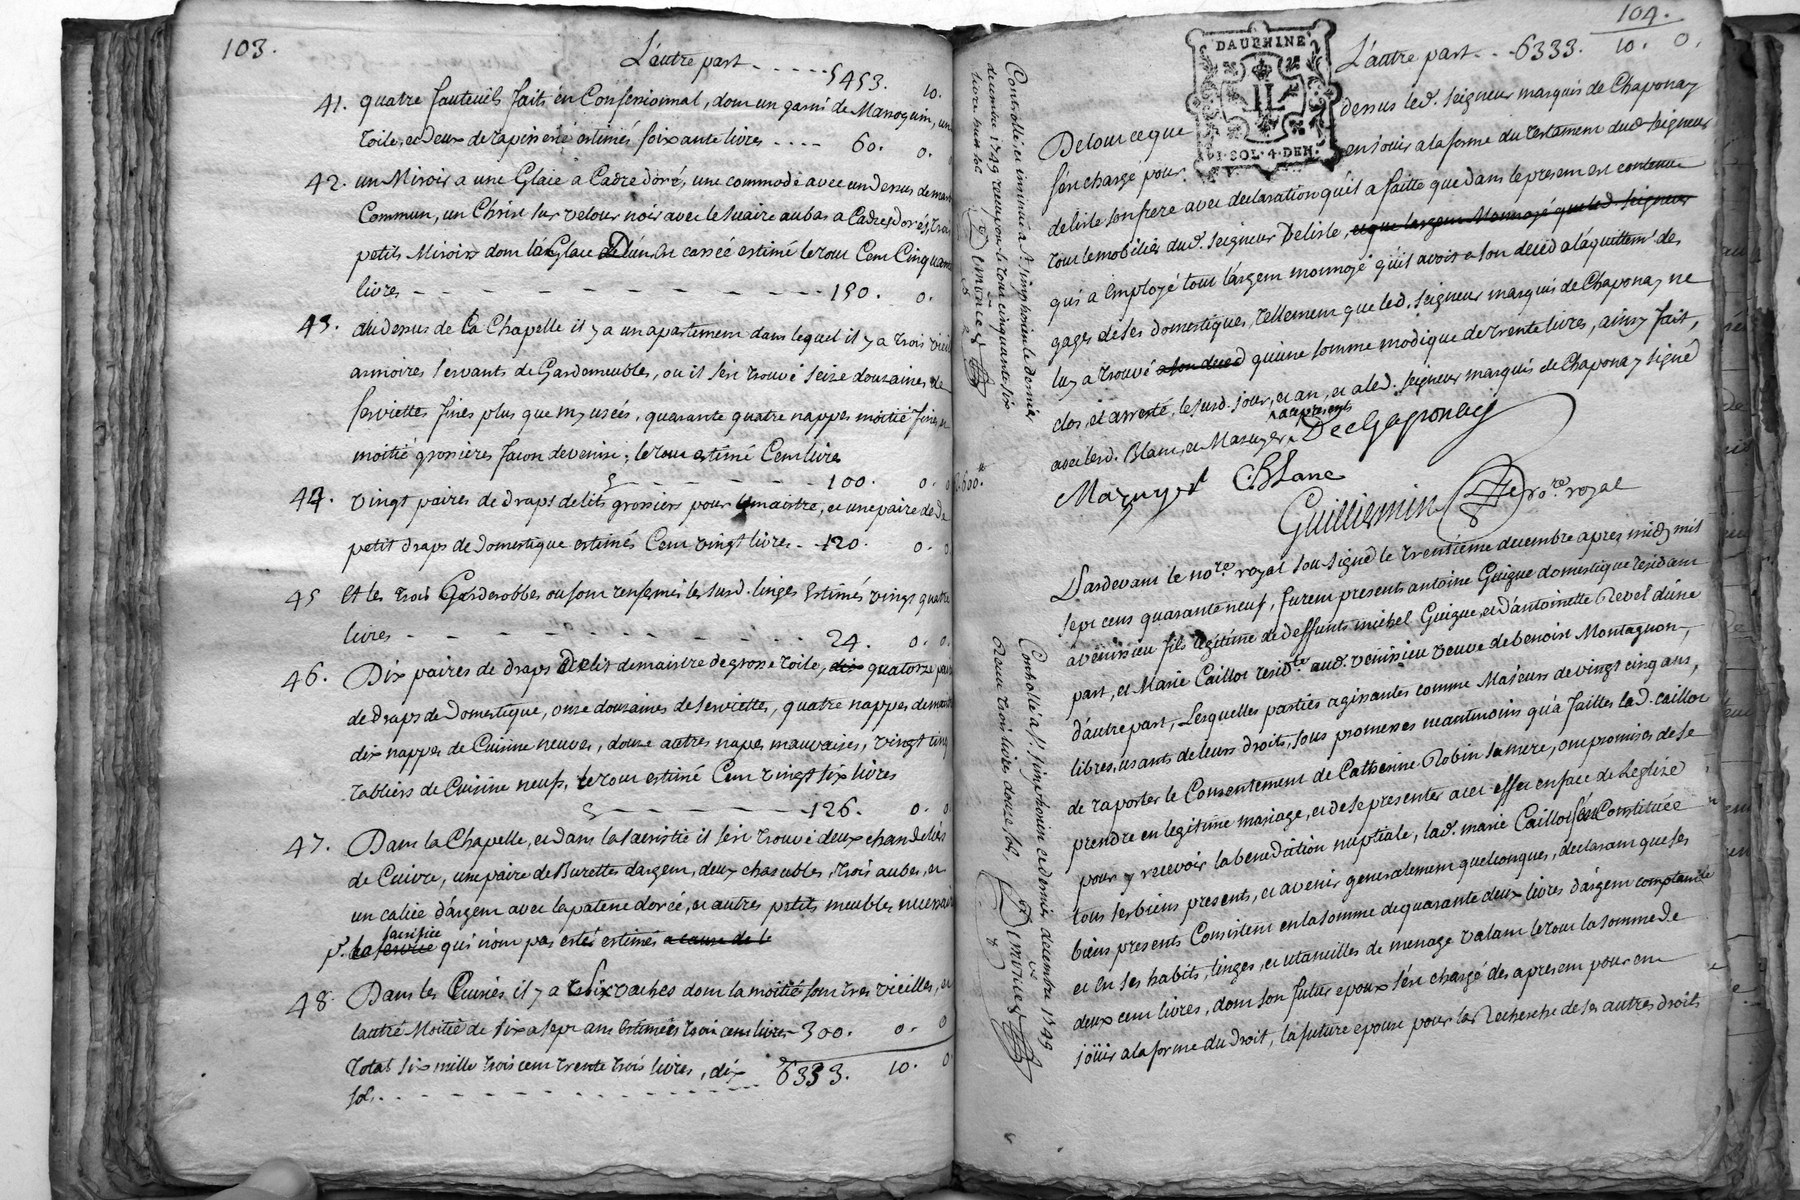 103.
L'autre part - - - - - 5453. 10.
41. quatre fauteuils faits en Confessionnal, dont un garni de Maroquin, un
toile, et deux de tapisserie estimés soixante livres - - - - 60. 0. 0
42. un Miroir a une Glace a Cadre doré, une commode avec un dessus de marb
Commun, un Christ sur velour noir avec le suaire au bas a Cadres dorés, trois
petits Miroirs dont la Glace de l'un est cassée estimé le tout Cent Cinquante
livres - - - - - - - - - - - - 150. 0.
43. au dessus de la Chapelle il y a un apartement dans lequel il y a trois vieil
armoires servants de Gardemeubles, ou il s'est trouvé seize douzaines de
serviettes fines plus que my usées, quarante quatre nappes moitié fines, et
moitié grossières façon de venise, le tout estimé Cent livres
- - - - - - - 100. 0. 0
44. vingt paires de draps de lits grossiers pour maitre, et une paire de
petit draps de Domestique estimés Cent vingt livres - 120. 0. 0.
45 Et les trois Garderobbes ou sont renfermés les susd. linges Estimés vingt quatre
livres - - - - - - - - - - - 24. 0. 0.
46. Dix paires de draps De lit de maistre de grosse toile, dix quatorze pair
de draps de Domestique, onze douzaines de serviettes, quatre nappes de maitre
dix nappes de Cuisine neuves, douze autres napes mauvaises, vingt cinq
tabliers de Cuisine neufs, le tout estimé Cent vingt six livres
- - - - - - - - 126. 0. 0
47. Dans la Chapelle, et dans la sacristie il s'est trouvé deux chandeliers
de Cuivre, une paire de Burettes d'argent, deux chasubles, trois aubes, et
un calice d'argent avec la patene dorée, et autres petits meubles necessair
sacrifice
pr. le service qui n'ont pas estés estimés a cause de le
48. Dans les Ecuries, il y a Six vaches dont la moitié sont tres vieilles, et
l'autre Moitié de six a sept ans Estimées trois cent livres - 300. 0. 0
Total six mille trois cent trente trois livres, dix 6333. 10. 0
sols. - - - - - - - - - - - - -
104.
L'autre part - - 6333. 10. 0.
DAUPHINE
1·SOL·4·DEN.
De tout ce que dessus led. seigneur marquis de Chaponay
s'en charge pour en jouir a la forme du testament dud. seigneur
delisle son frere avec declaration qu'il a faitte que dans le present est contenu
tout le mobilier dud. seigneur Delisle, et que l'argent Monnoyé que led. seigneur
qui a Employé tout l'argent monnoyé qu'il avoit a son decéd a l'aquittemt. des
gages de ses domestiques, tellement que led. seigneur marquis de Chaponay ne
luy a trouvé a son deced qu'une somme modique de trente livres, ainsy fait,
clos, et arresté, le susd. jour, et an, et a led. seigneur marquis de Chaponay signé
avec lesd. Blanc, et Mazuyer DeChaponay
Mazuyer CBlanc
Guilliermin no.re royal
Controllé, et insinué a St. simphorien le dernier
decembre 1749 receu pour le tout cinquante six
livres huit sols
Demonceys
Pardevant le no.re royal sousigné le trentieme decembre apres midy mil
sept cens quarante neuf, furent presents antoine Guigue domestique residant
a veninieu fils legitime de deffunts michel Guigue, et d'antoinette Revel d'une
part, et Marie Caillot resid.te aud. veninieu veuve de benoist Montagnon,
d'autre part, Lesquelles parties agissantes comme Majeurs de vingt cinq ans,
libres, usants de leurs droits, sous promesses neantmoins qu'a failles lad. caillot
de raporter le Consentement de Catherine Robin sa mere, ont promises de se
prendre en legitime mariage, et de se presenter a cet effet en face de Leglize
pour y recevoir la benediction nuptiale, lad. marie Caillot s'est Constituée
tous ses biens presents, et avenir generalement quelconques, declarant que ses
biens presents Consistent en la somme de quarante deux livres d'argent comptant
et en ses habits, linges, et utancilles de menage valant le tout la somme de
deux cent livres, dont son futur epoux s'est chargé des apresent pour en
joüir a la forme du droit, la future epouse pour la Recherche de ses autres droits
Controllé a St. simphorien ce dernier decembre 1749
Receu trois livres douze sols.
Demonceys